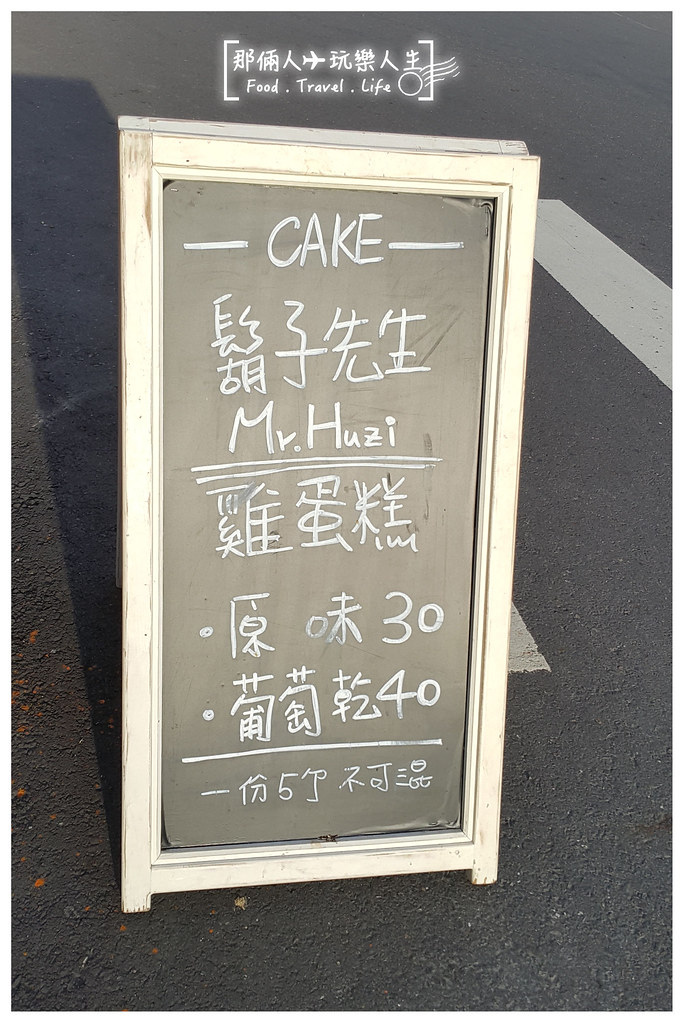 那倆人✈玩樂人生
Food . Travel . Life
— CAKE —
鬍子先生
Mr. Huzi
雞蛋糕
·原 味 30
·葡萄乾40
一份5个 不可混